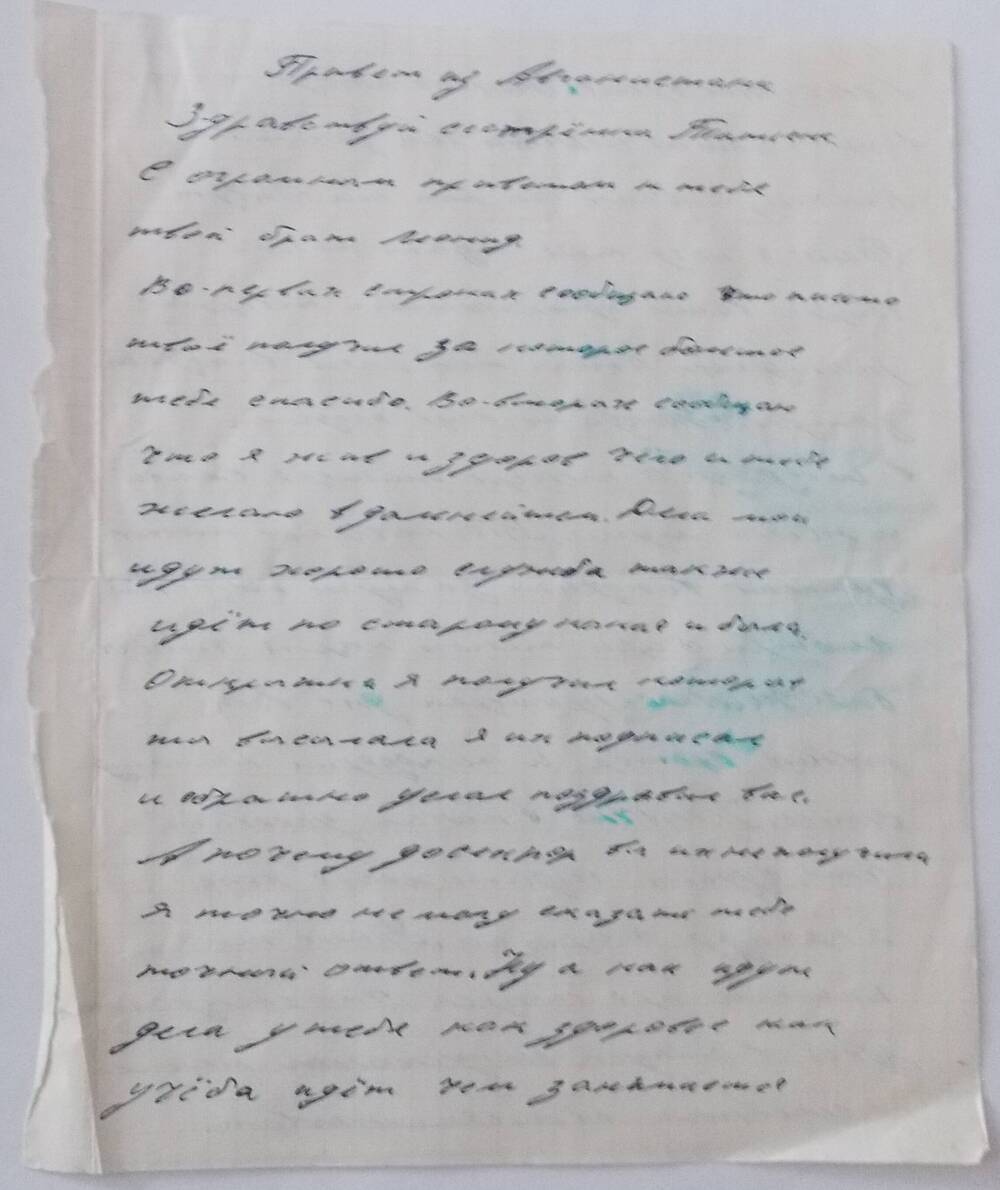 Привет из Авганистана
Здравствуй сестрёнка
С огромным приветом к тебе
твой брат Леонид.
Во-первых строках сообщаю что письмо
твоё получил за которое большое
тебе спасибо. Во-вторых сообщаю
что я жив и здоров чего и тебе
желаю в дальнейшем. Дела мои
идут хорошо служба также
идёт по старому как и была.
Открытки я получил которые
ты высылала я их подписал
и обратно услал поздравил вас.
А почему досехпор вы их не получили
я точно не могу сказать тебе
точный ответ. Ну а как идут
дела у тебя как здоровье как
учёба идёт чем занимаешься